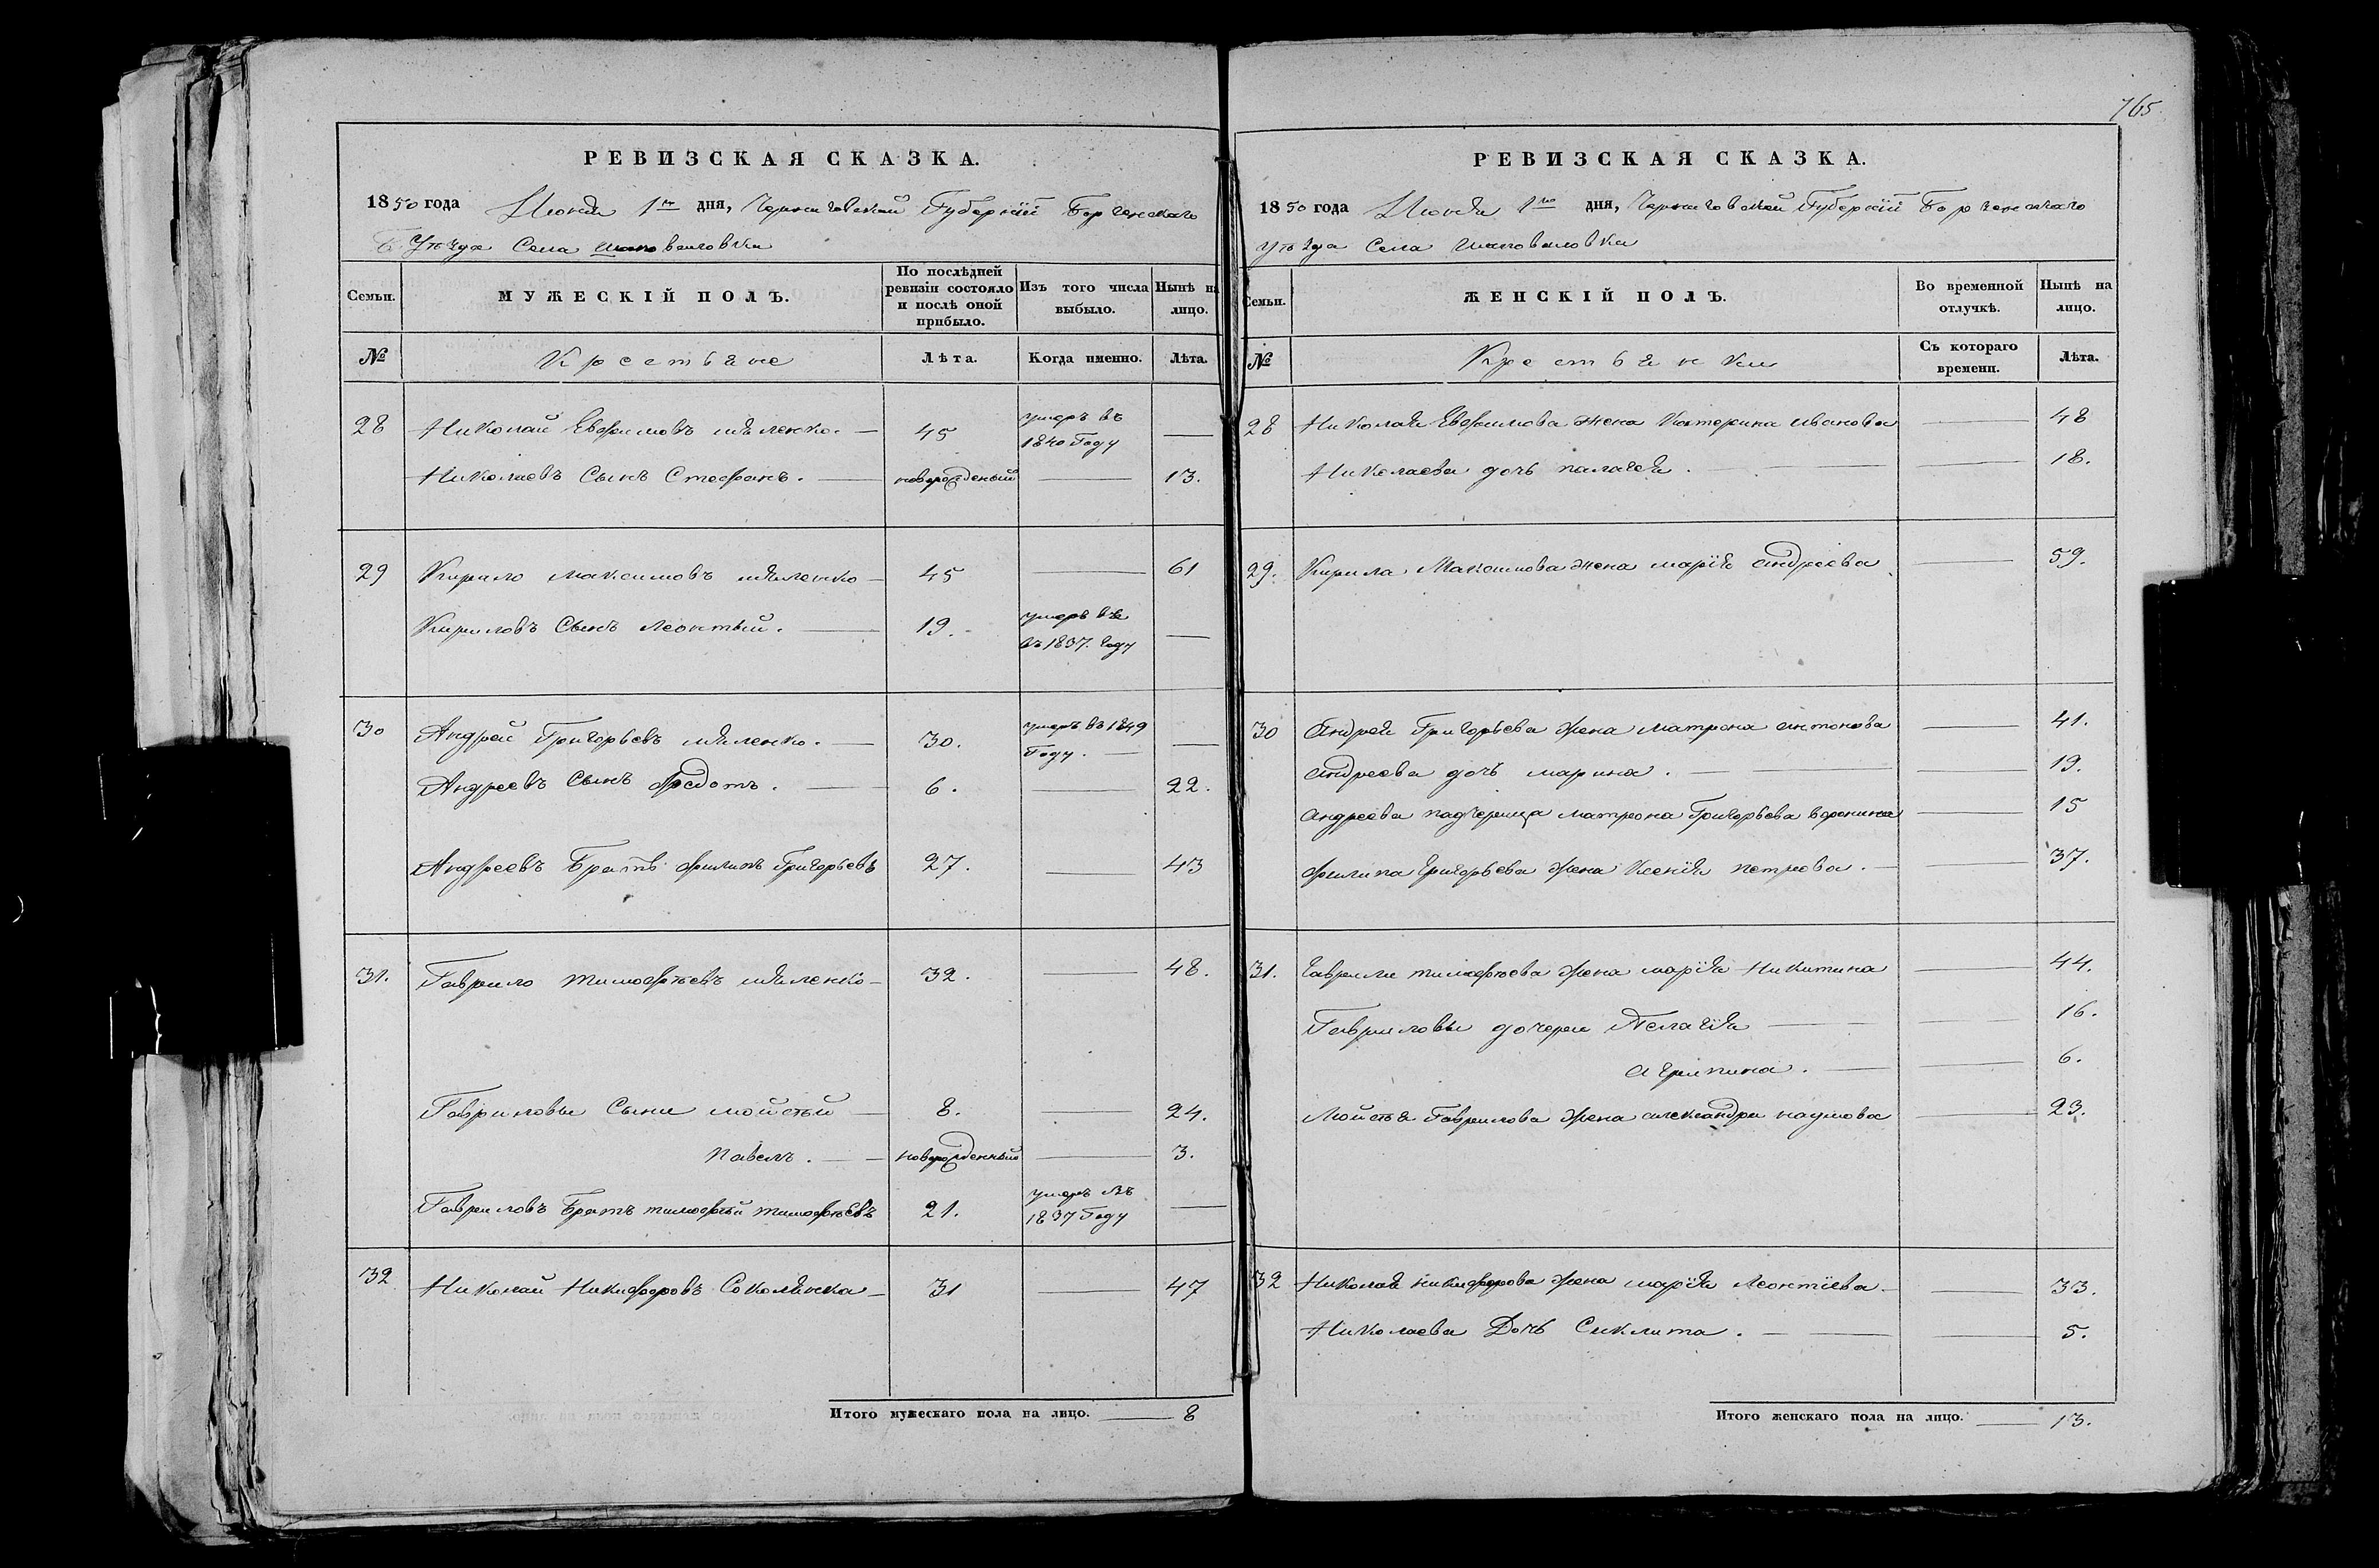 765.
РЕВИЗСКАЯ СКАЗКА.
1850 года Июня 1го дня, Черниговской Губерніи Борзенскаго
Уѣзда Села Шаповаловки
Семьи. МУЖЕСКІЙ ПОЛЪ. По послѣдней ревизіи состояло и послѣ оной прибыло. Изъ того числа выбыло. Нынѣ на лицо.
№ Крестьяне Лѣта. Когда именно. Лѣта.
28 Николай Евфимовъ 45 умеръ въ 1840 Году —
Николаевъ Сынъ Стефанъ. — новорожденый — 13.
29 Кирило Максимовъ 45 — 61
Кириловъ Сынъ Леонтий. — 19. умеръ въ 1837. году —
30 Андрей Григорьевъ 30. умеръ въ 1849 Году. —
Андреевъ Сынъ Федотъ. — 6. — 22.
Андреевъ Братъ Филипъ Григорьевъ 27. — 43
31. Гаврило Тимофѣевъ 32. — 48.
Гавриловы Сыни Мойсѣй — 8. — 24.
Павелъ. — новорожденный — 3.
Гавриловъ Братъ тимофѣй тимофѣевъ 21. умеръ въ 1837 Году —
32 Николай Никифоровъ 31 — 47
Итого мужескаго пола на лицо. — 8
РЕВИЗСКАЯ СКАЗКА.
1850 года Июня 1го дня, Черниговской Губерніи Борзенскаго
уѣзда Села Шаповаловки
Семьи. ЖЕНСКІЙ ПОЛЪ. Во временной отлучкѣ. Нынѣ на лицо.
№ Крестьянки Съ котораго времени. Лѣта.
28 Николая Евфимова жена Катерина иванова — 48
Николаева дочь палагея. — 18.
29. Кирила Максимова жена марія андреева — 59.
30 андрея Григорьева жена матрона антонова — 41.
андреева дочь марина. — 19.
андреева падчерица матрона Григорьева — 15
филипа григорьева жена Ксенія петрова. — 37.
31. гаврили тимофѣева жена марія Никитина — 44.
Гавриловы дочери Пелагія — 16.
агрипина. — 6.
Мойсѣя Гаврилова жена александра наумова — 23.
32 Николая никифорова жена марія Леонтіева — 33.
Николаева Дочь Сиклита. — 5.
Итого женскаго пола на лицо. — 13.